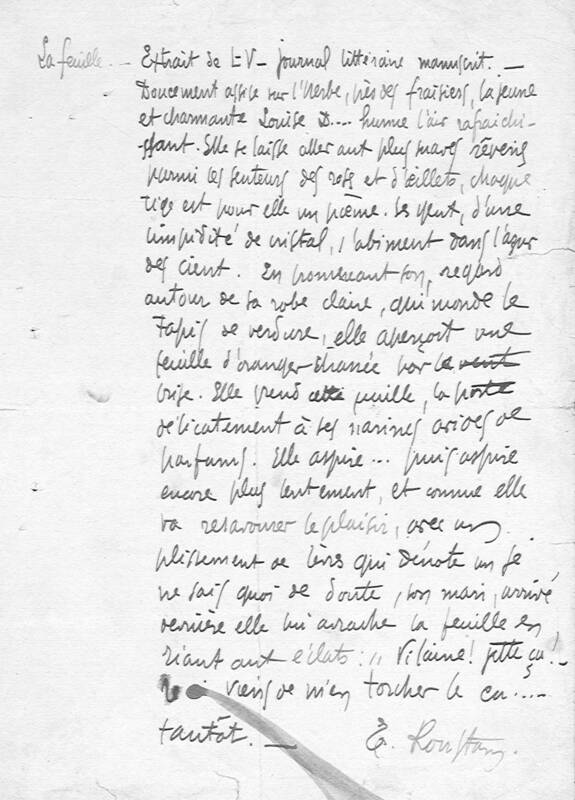 La feuille. — Extrait de L-V- journal littéraire manuscrit. —
Doucement assise sur l'herbe, près des fraisiers, la jeune
et charmante Louise D.... hume l'air rafraichi-
ssant. Elle se laisse aller aux plus suaves rêveries
parmi les senteurs des roses et d'œillets, chaque
tige est pour elle un poème. Ses yeux, d'une
limpidité de cristal, s'abiment dans l'azur
des cieux. En promenant son regard
autour de sa robe claire, qui inonde le
tapis de verdure, elle aperçoit une
feuille d'oranger chassée par le vent
brise. Elle prend cette feuille, la porte
délicatement à ses narines avides de
parfums. Elle aspire... puis aspire
encore plus lentement, et comme elle
va resavourer le plaisir, avec un
plissement de lèvres qui dénote un je
ne sais quoi de doute, son mari, arrivé
derrière elle lui arrache la feuille en
riant aux éclats : " Vilaine! jette ça!
viens de m'en torcher le cu....
tantôt. — E. Rostand.